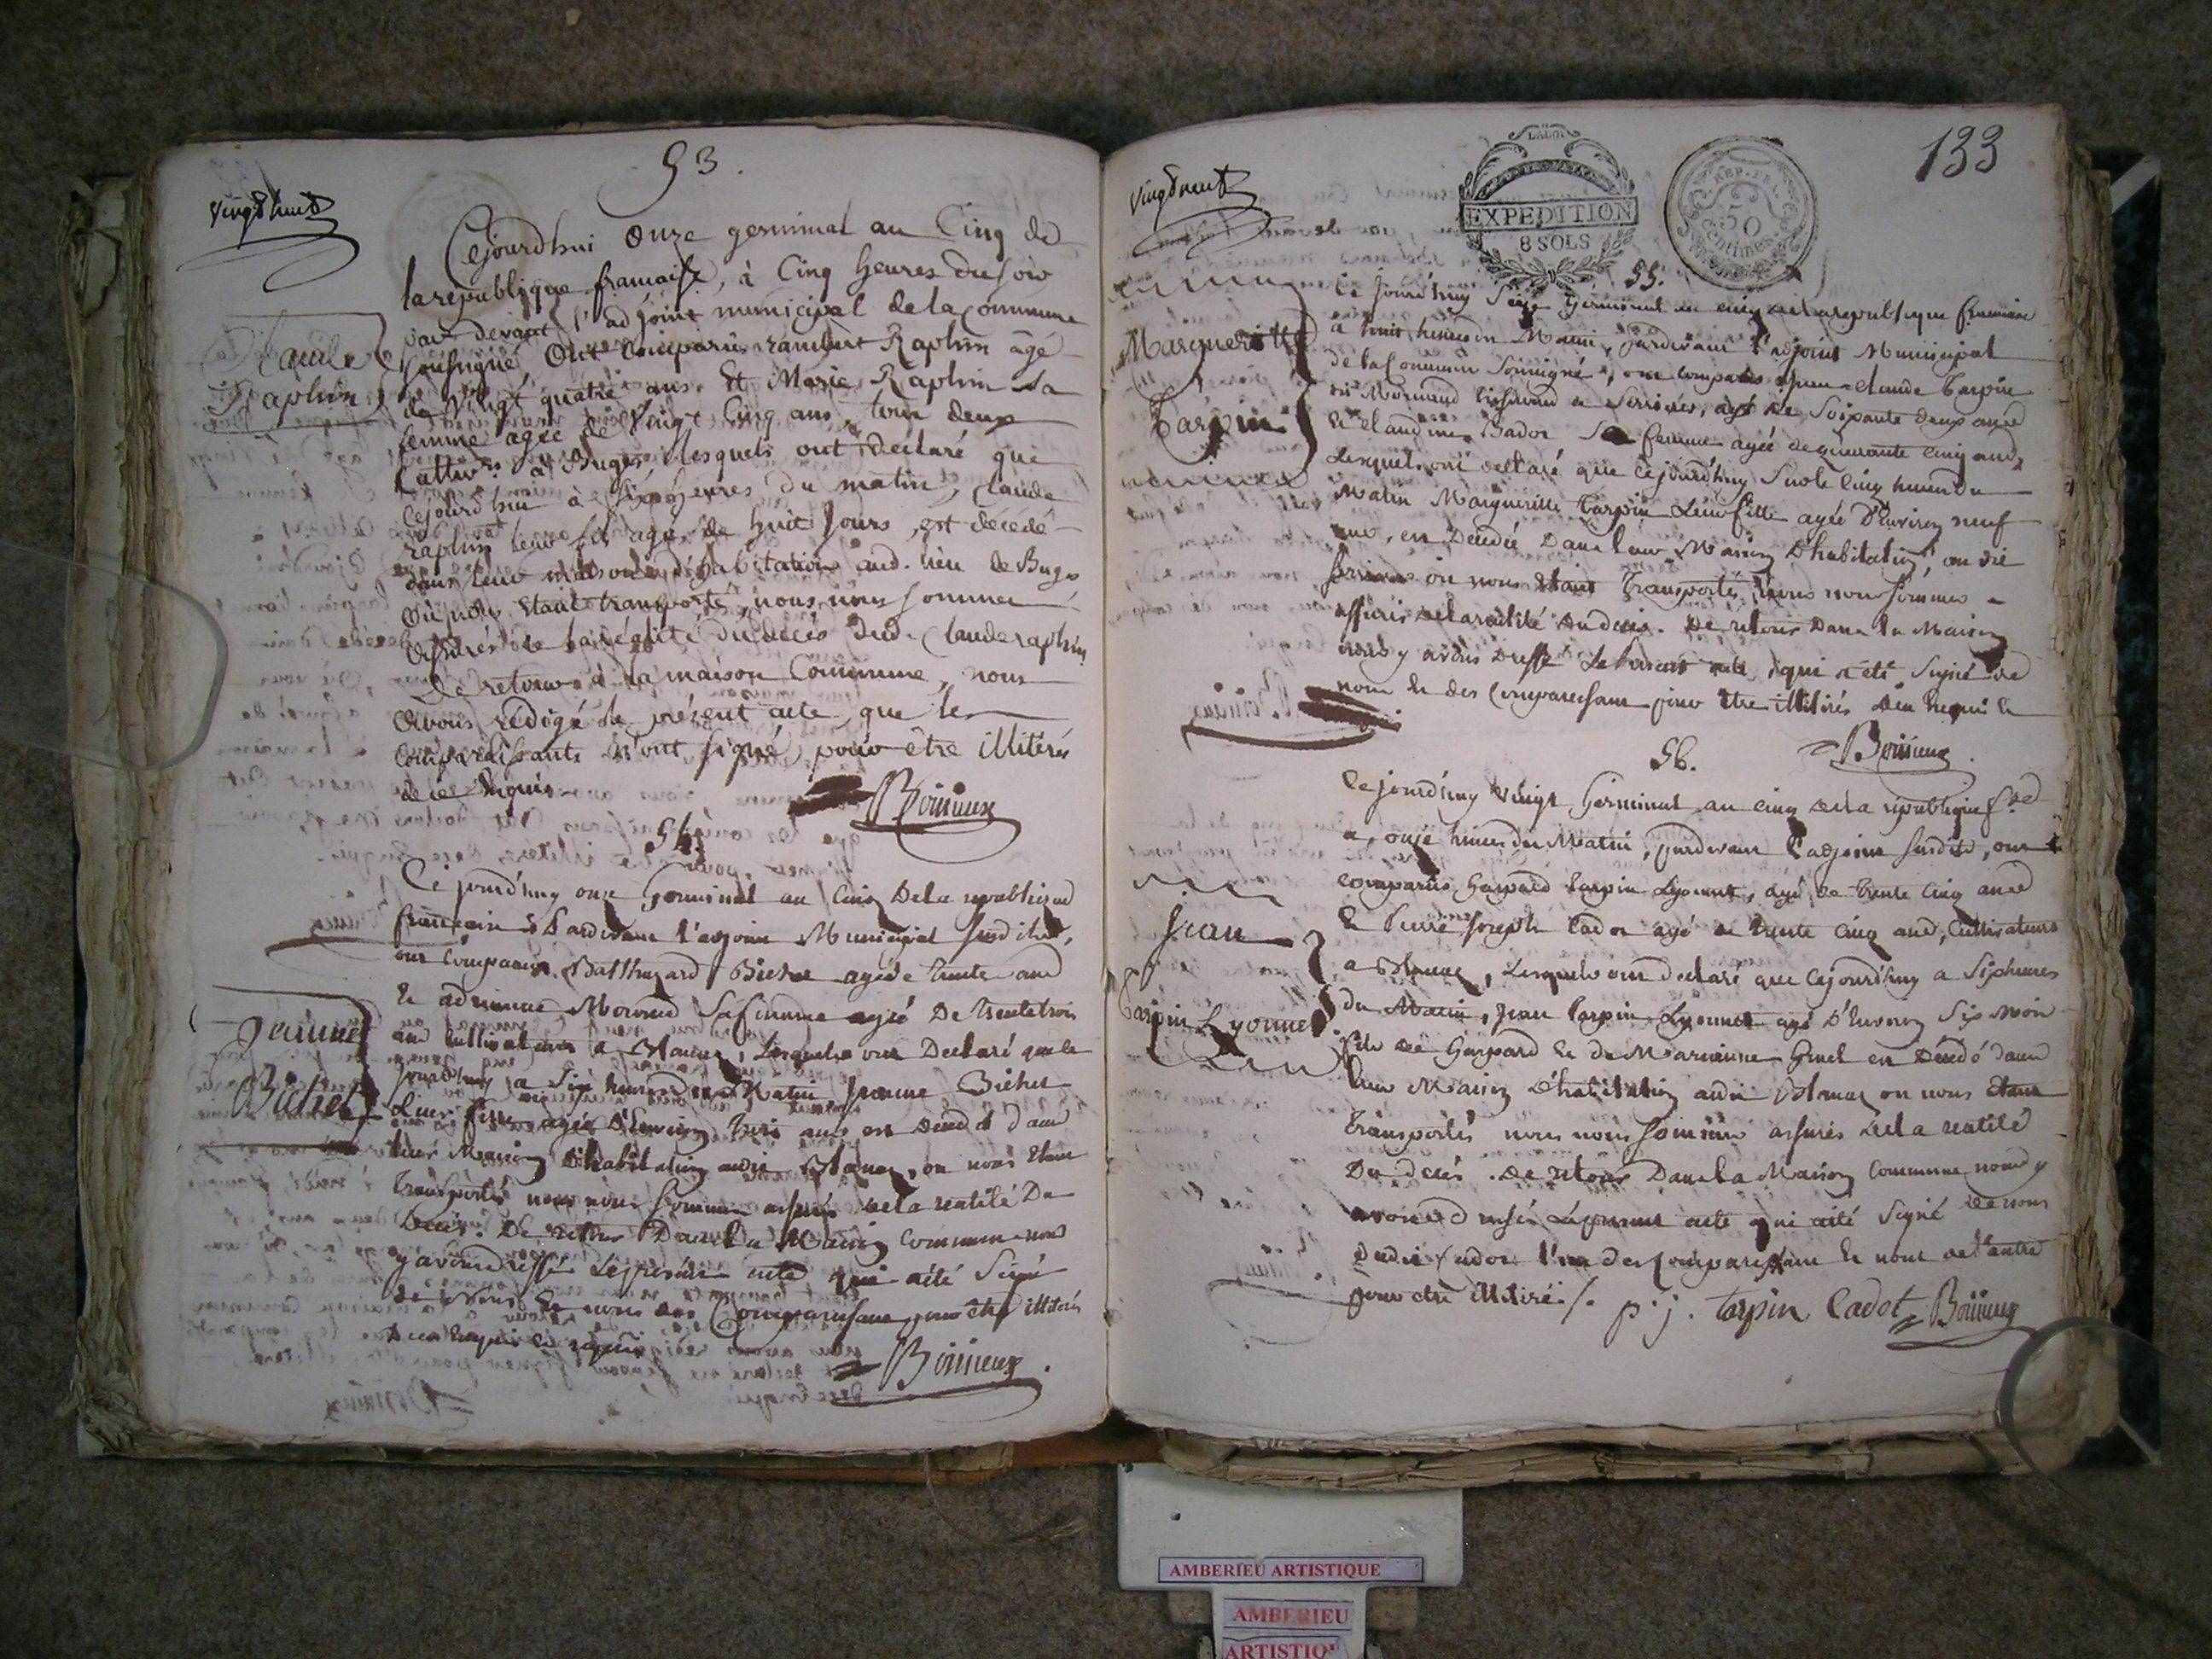 53.
Vingt huit
Cejourdhui Onze germinal an Cinq de
la republique francaise, à Cinq heures du soir
par devant l'adjoint municipal de la Commune
Soussigné Ont Comparu rambert Raphin âgé
de vingt quatre ans Et Marie Raphin sa
femme agée de Vingt Cinq ans, tous deux
Cultiv.rs à Buges, lesquels ont Déclaré que
Cejourdhui à Six heures du matin, Claude
raphin leur fils agé de huit Jours, est décédé
dans leur maison d'habitation aud. lieu de Buges
Où nous étant transporté, nous nous sommes
assurés de la réalité du décès dud. Claude raphin
De retour à la maison Commune, nous
avons redigé le présent acte que les
Comparaissants n'ont signé pour être illiterés
de ce Enquis
Claude
Raphin
Boisieux
54.
Ce jourd'huy onze Germinal an Cinq De la republique
francaise Pardevant l'adjoint Municipal susdit,
ont Comparus Balthazard Bichet agé de trente ans
Et adrienne Morand Sa femme agée De trente trois
ans Cultivateurs a Blanaz, Lesquels ont Declaré que le
jourd'huy a Six heures du Matin Jeanne Bichet
Leur fille agée D'Environ trois ans est Decedé dans
leur Maison D'habitation audit Blanaz, ou nous Etant
transportés nous nous Sommes assurés de la realité Du
Deces. De retour Dans la Maison Commune nous
y avons dressé Le present acte qui a été Signé
de Nous Et non des Comparaissans pour être illiterés
De ce Enquis
Jeanne
Bichet
Boisieux
133
Vingt neuf
LA LOI
EXPEDITION
8 SOLS
REP. FRA.
50
centimes
55.
Ce Jourd'huy Seize Germinal an cinq de la republique francaise
a huit heures du Matin, pardevant l'adjoint Municipal
de la Commune Soussigné, ont comparus Jean Claude Tarpin
dit Mormand tisserand a Serrieres, agé de Soixante deux ans
Et Claudine Bador Sa femme agée de quarante cinq ans,
Lesquels ont declaré que Cejourd'huy Sur les cinq heures Du
Matin Marguerite Tarpin Leur fille agée D'Environ neuf
ans, est Decedée Dans leur Maison D'habitation, au dit
Serrieres ou nous étant Transportés nous nous Sommes
assurés de la realité du deces. De retour Dans la Maison
nous y avons Dressé Le present acte qui a été Signé de
nous Et non des Comparaissans pour être illiterés De ce Enquis
Marguerite
Tarpin
Boisieux
56.
Cejourd'huy Vingt Germinal an cinq de la république f.se
a onze heures du Matin, pardevant l'adjoint susdit, ont
comparus Gaspard Tarpin Lyonnet, agé de trente cinq ans
Et Pierre Joseph Cadot agé de trente cinq ans, Cultivateurs
a Blanaz, Lesquels ont declaré que Cejourd'huy a Six heures
du Matin, Jean Tarpin Lyonnet agé D'Environ Six mois
fils de Gaspard Et de Marianne Ginet est Décédé dans
leur Maison D'habitation audit Blanaz ou nous Etant
transportés nous nous Sommes assurés de la realité
Du deces. De retour Dans la Maison Commune nous y
avons dressé Le present acte qui a été Signé de nous
dudit Cadot l'un des Comparaissans Et non de l'autre
pour etre illiteré./.
Jean
Tarpin Lyonnet
p. j. tarpin Cadot
Boisieux
AMBERIEU ARTISTIQUE
AMBERIEU
ARTISTIQ